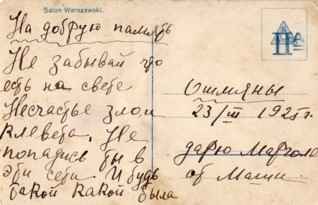 Salon Warszawski.
На добрую память
Не забывай что
есть на свете
Несчастье злои
клевета. Не
попадись бы в
эти сети. И будь
такой какой была
Ошмяны
23/III 1925 г.
дарю
от Маши